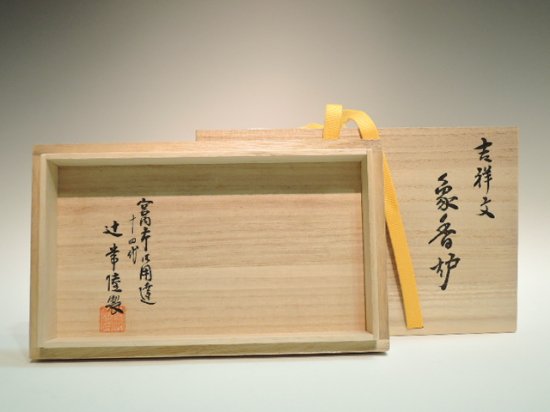 吉祥文
象香炉
宮内庁御用達
十四代
辻常陸製